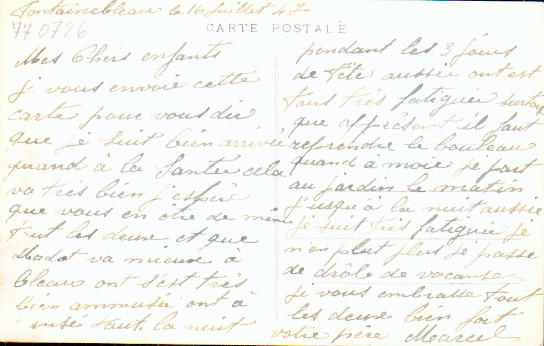 Fontainebleau le 16 Juillet 47
770726
CARTE POSTALE
Mes Chers enfants
je vous envoie cette
carte pour vous dir
que je suit bien arrivée
quand à la Santée cela
va tres bien j'espère
que vous en ete de mème
tout les deux et que
Madot va mieux à
bleau ont s'est très
bien ammusée ont à
toute la nuit
pendant les 3 jours
de Fête aussie ont est
tous très fatiguer surtout
que apprésent il faut
reprendre le bouleau
quand à moie je part
au jardin le matin
jusqu'à la nuit aussie
je suit très fatiguer je
n'en peut plus je passe
de drôle de vacances
je vous embrasse tout
les deux bien fort
votre père Marcel